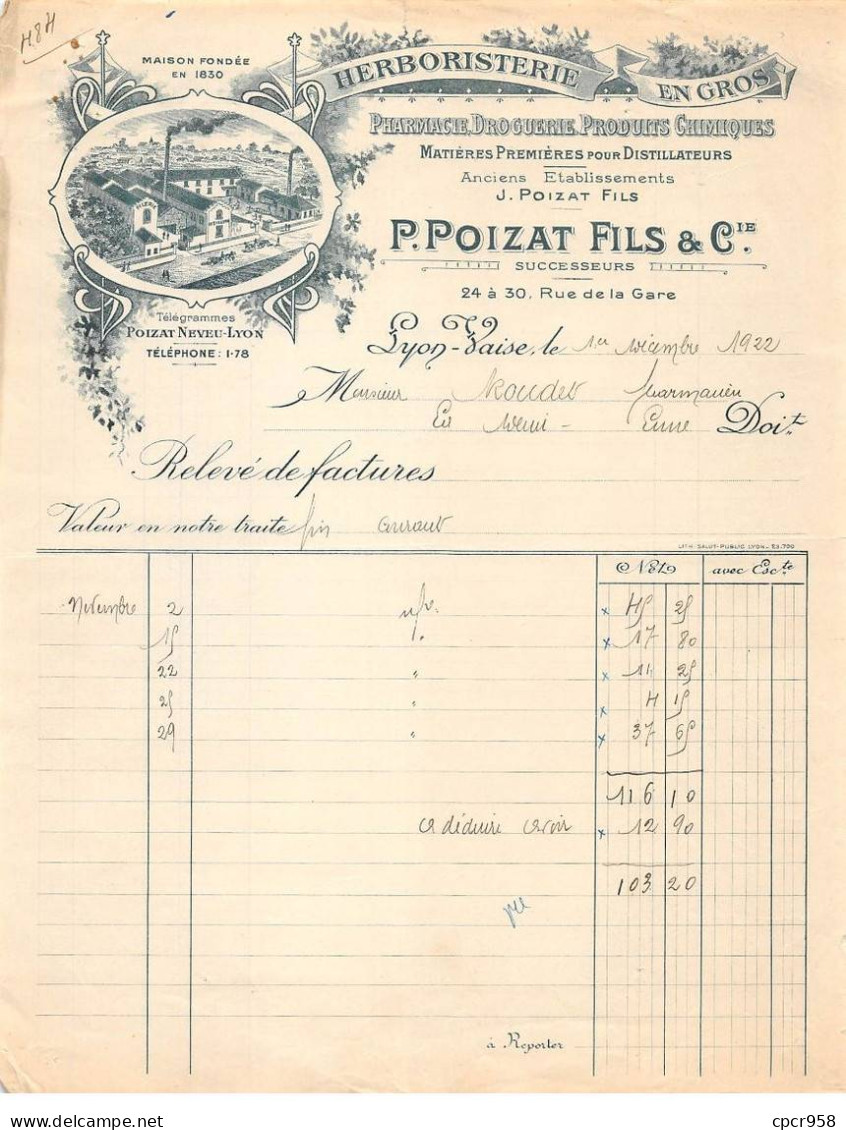 H8H
MAISON FONDÉE
EN 1830
HERBORISTERIE
EN GROS
PHARMACIE, DROGUERIE, PRODUITS CHIMIQUES
MATIÈRES PREMIÈRES POUR DISTILLATEURS
Anciens Etablissements
J. POIZAT FILS
P. POIZAT FILS & CIE.
SUCCESSEURS
24 à 30, Rue de la Gare
Télégrammes
POIZAT NEVEU-LYON
TÉLÉPHONE: 1-78
Lyon-Vaise, le 1er Décembre 1922
Monsieur Pharmacien
Doit
Relevé de factures
Valeur en notre traite fin courant
LITH. SALUT-PUBLIC LYON_ 53.700
Net avec Escte
Novembre 2 n/fre. x 45 25
15 x 17 80
22 " x 11 25
25 " x 4 15
29 " x 37 65
116 10
à déduire avoir x 12 90
103 20
à Reporter
CPCR958